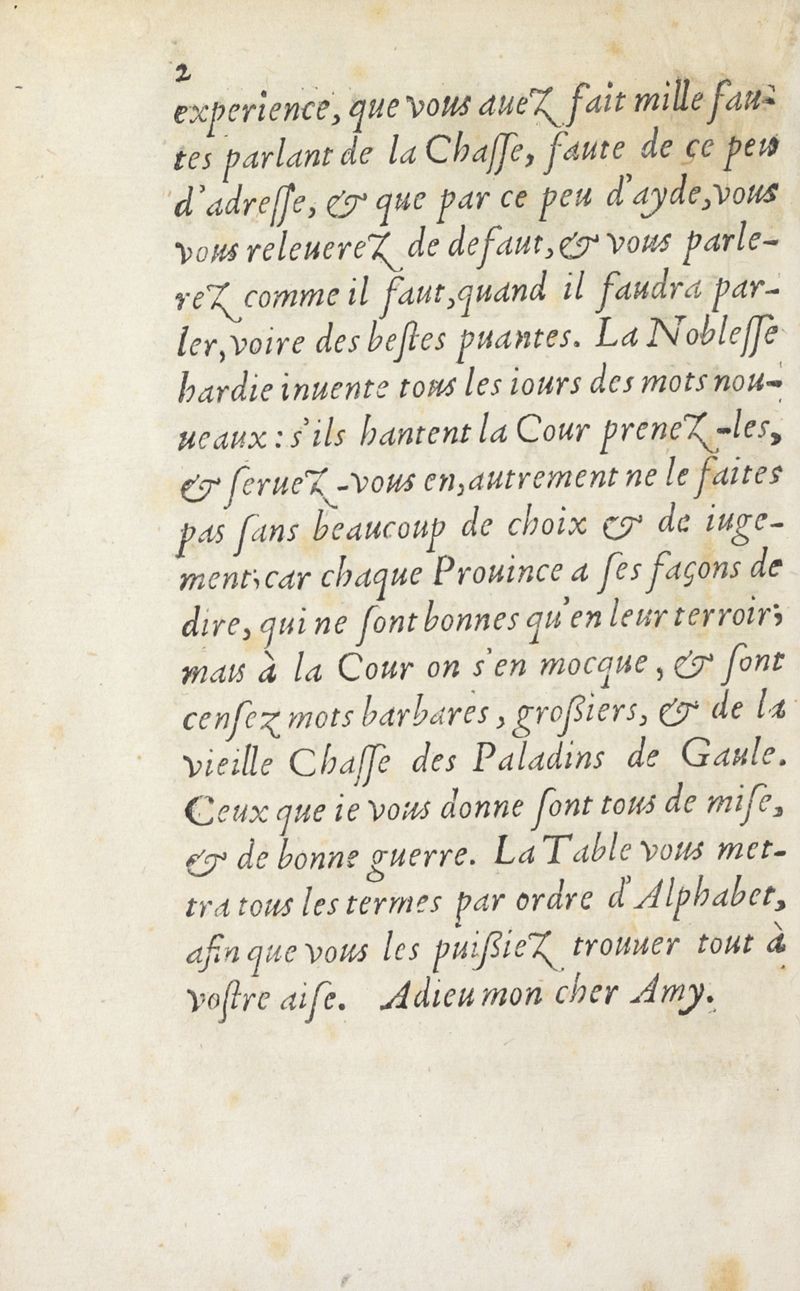 2
experience, que vous auez fait mille fau-
tes parlant de la Chaſſe, faute de ce peu
d'adreſſe, & que par ce peu d'ayde, vous
vous releuerez de defaut, & vous parle-
rez comme il faut, quand il faudra par-
ler, voire des beſtes puantes. La Nobleſſe
hardie inuente tous les iours des mots nou-
ueaux : s'ils hantent la Cour prenez-les,
& ſeruez-vous en, autrement ne le faites
pas ſans beaucoup de choix & de iuge-
ment; car chaque Prouince a ſes façons de
dire, qui ne ſont bonnes qu'en leur terroir;
mais à la Cour on s'en mocque, & ſont
cenſez mots barbares, groſſiers, & de la
vieille Chaſſe des Paladins de Gaule.
Ceux que ie vous donne ſont tous de miſe,
& de bonne guerre. La Table vous met-
tra tous les termes par ordre d'Alphabet,
afin que vous les puiſſiez trouuer tout à
voſtre aiſe. Adieu mon cher Amy.